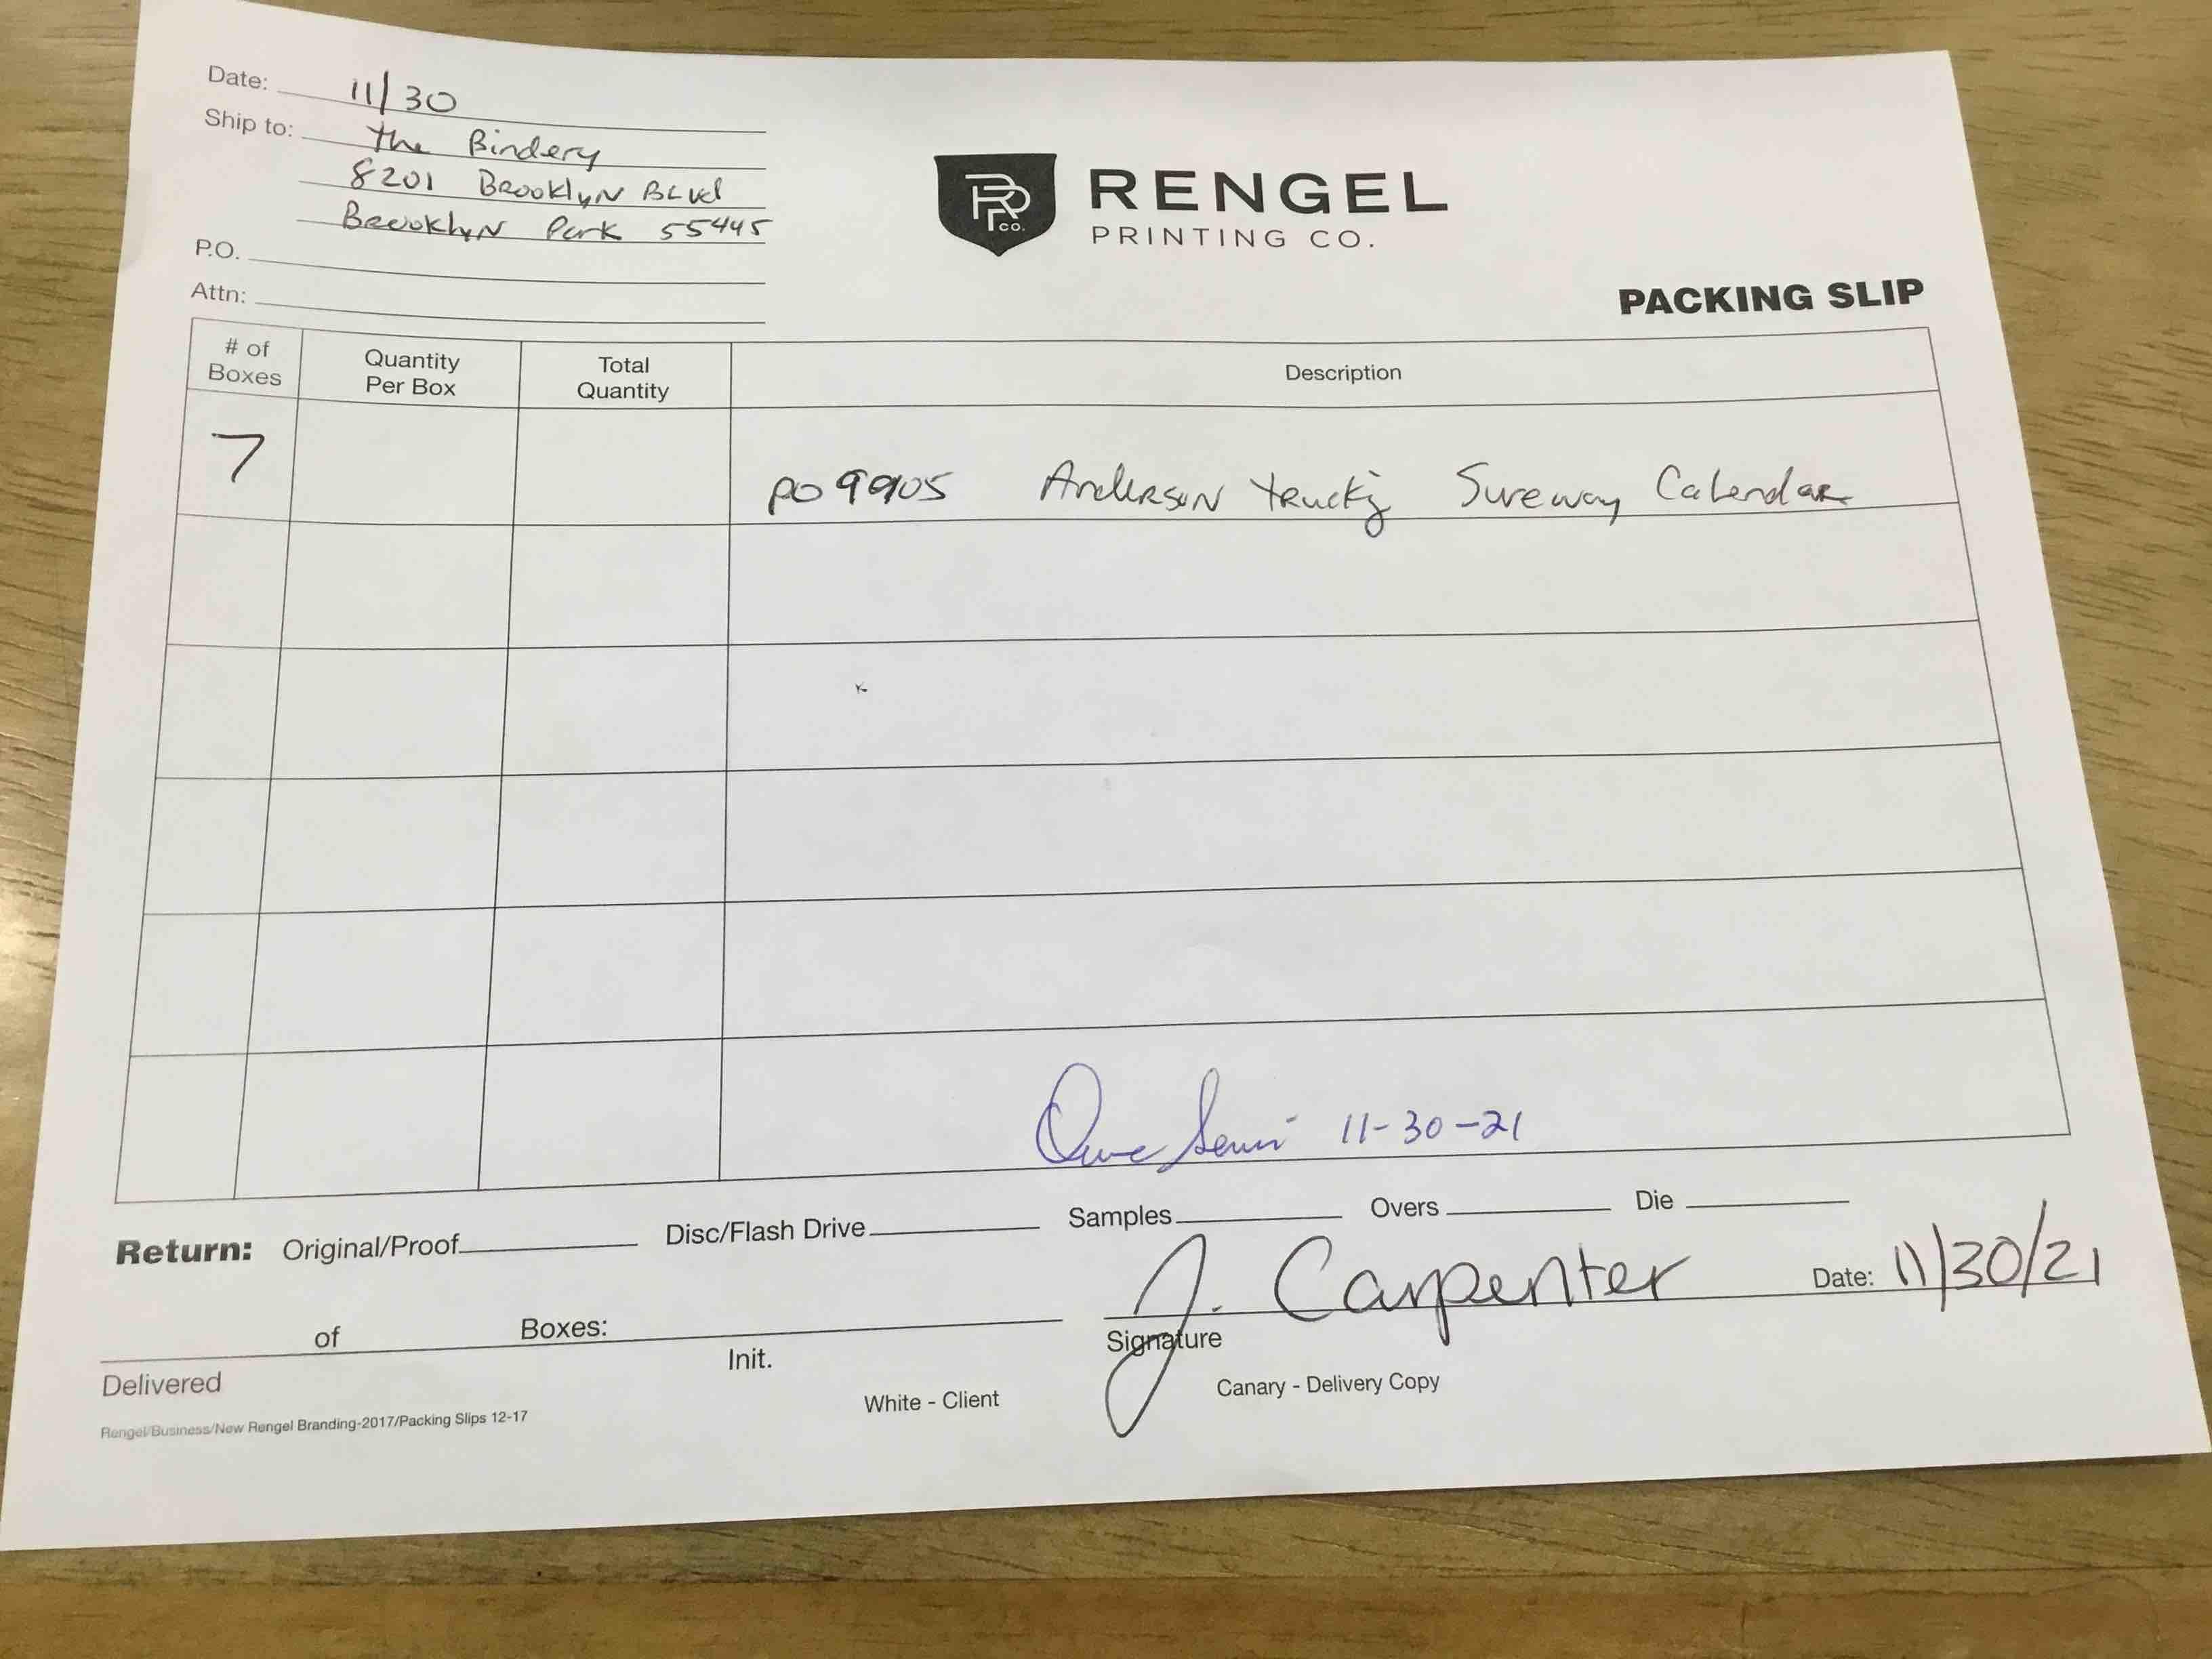 Date: 11/30
Ship to: the Bindery
8201 Brooklyn Blvd
Brooklyn Park 55445
P.O.
Attn:
RENGEL
PRINTING CO.
PACKING SLIP
# of Boxes Quantity Per Box Total Quantity Description
7 PO 9905 Anderson Trucking Sureway Calendar
11-30-21
Return: Original/Proof Disc/Flash Drive Samples Overs Die
J. Carpenter Date: 11/30/21
of Boxes: Signature
Delivered Init.
White - Client Canary - Delivery Copy
Rengel/Business/New Rengel Branding-2017/Packing Slips 12-17